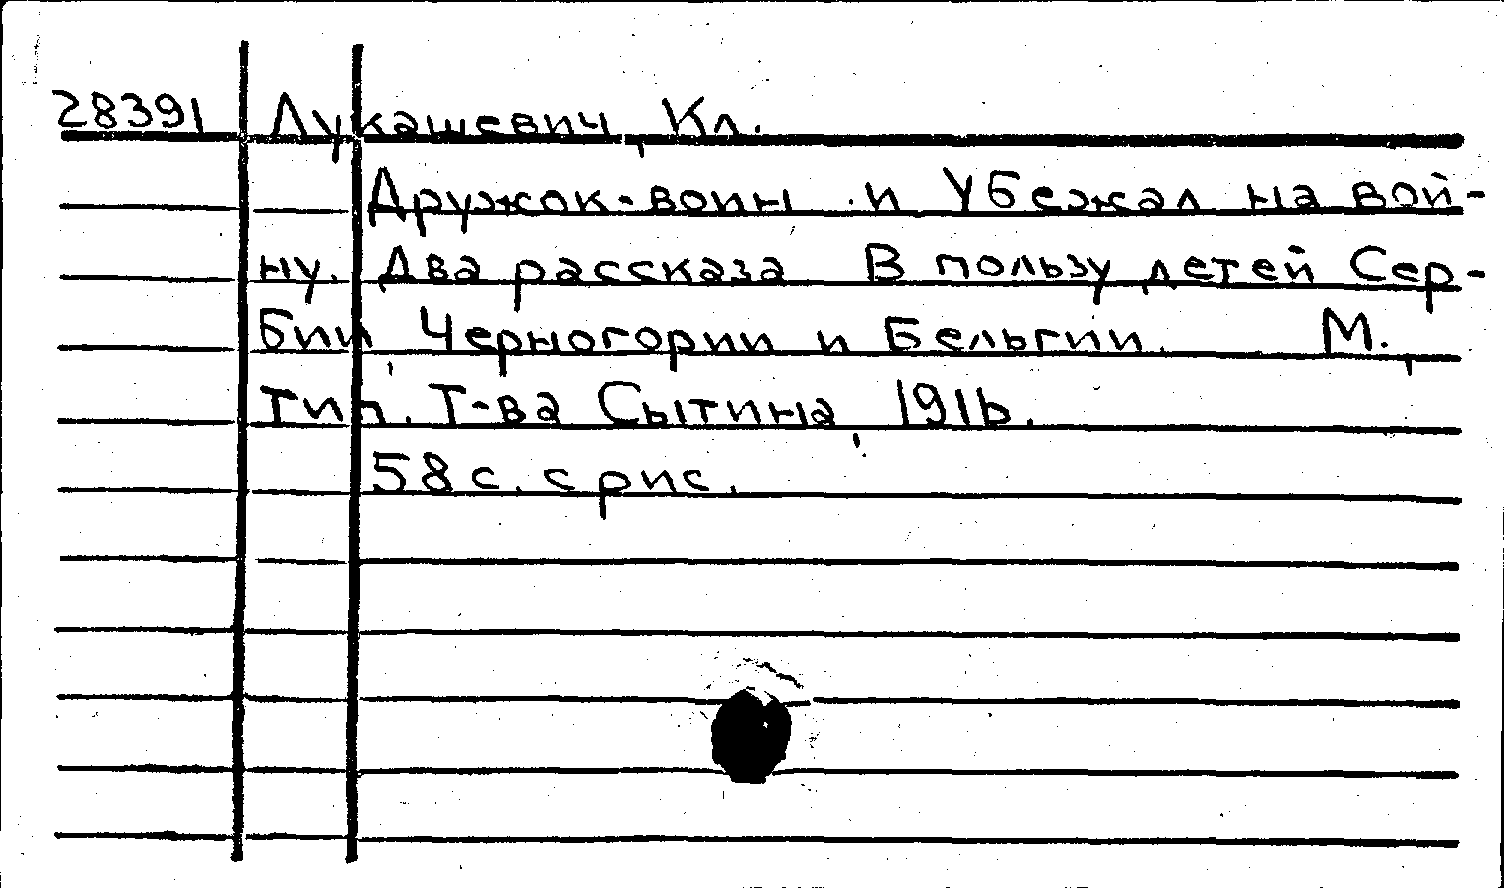 28391 Лукашевич, Кл.
Дружок-воин и Убежал на вой-
ну. Два рассказа В пользу детей Сер-
бии, Черногории и Бельгии. М.,
тип. Т-ва Сытина, 1916.
58 с. с рис.